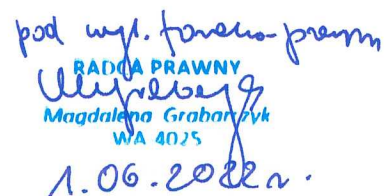 pod wzgl. formalno-prawnym
RADCA PRAWNY
Magdalena Grabarczyk
WA 4025
1.06.2022 r.